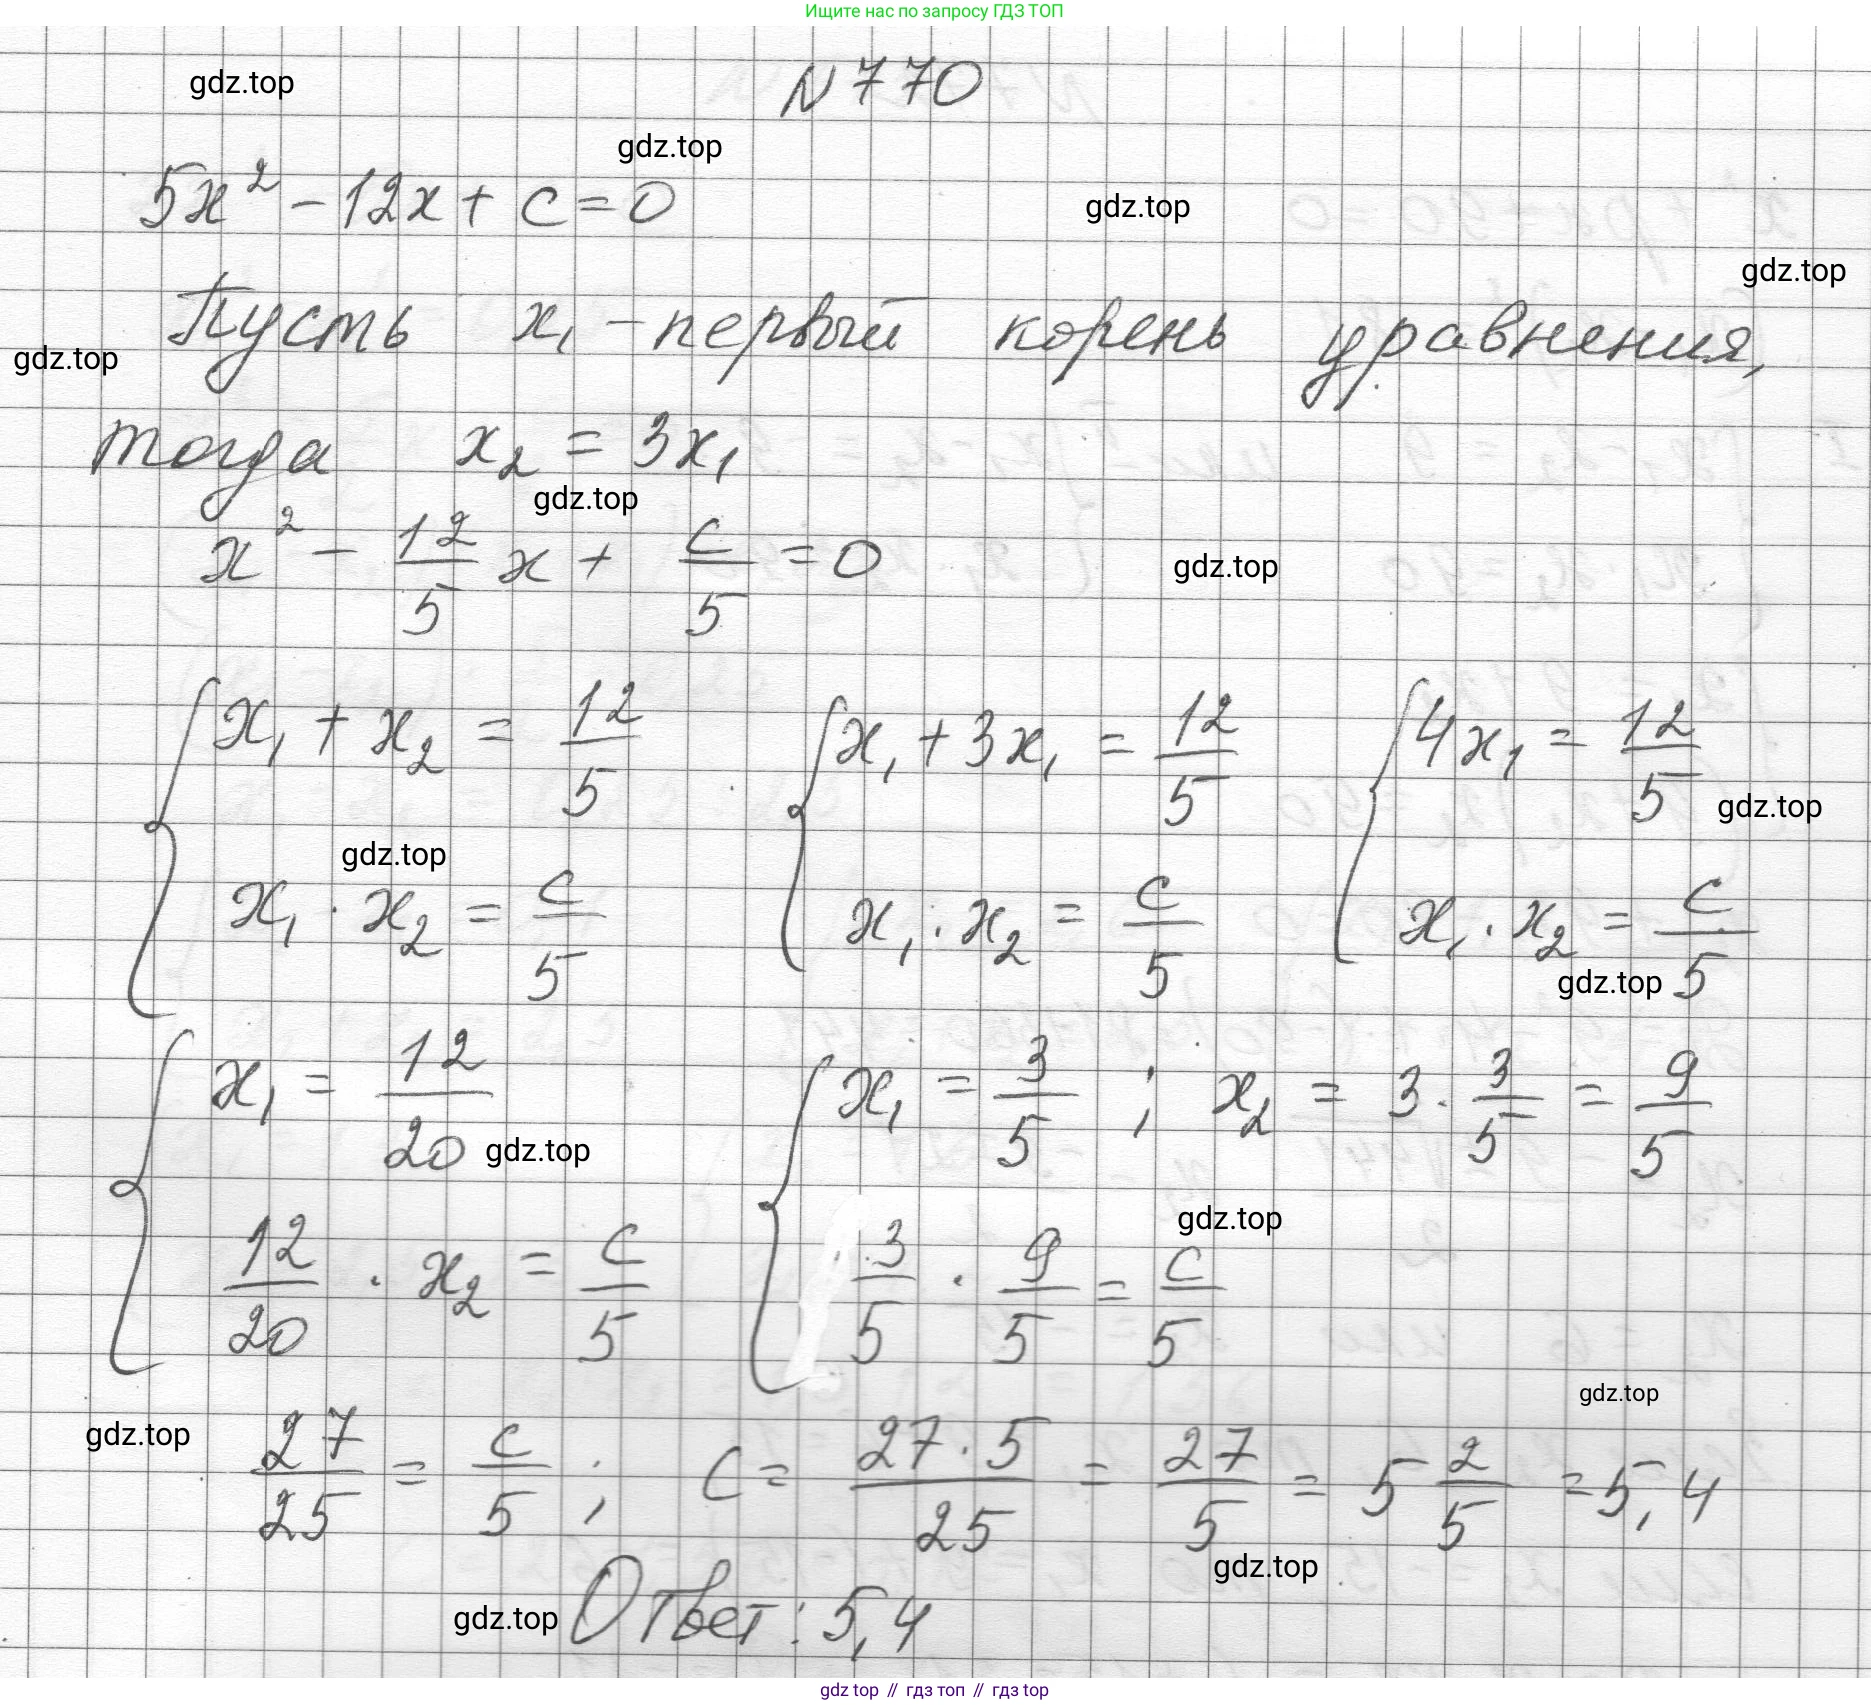 Ищите нас по запросу ГДЗ ТОП
gdz.top
N 770
gdz.top
5x² - 12x + c = 0
gdz.top
gdz.top
Пусть x₁ - первый корень уравнения,
gdz.top
тогда x₂ = 3x₁
gdz.top
x² - 12/5 x + c/5 = 0
gdz.top
{ x₁ + x₂ = 12/5 { x₁ + 3x₁ = 12/5 { 4x₁ = 12/5
gdz.top
gdz.top
x₁ · x₂ = c/5 x₁ · x₂ = c/5 x₁ · x₂ = c/5
gdz.top
{ x₁ = 12/20 { x₁ = 3/5 ; x₂ = 3 · 3/5 = 9/5
gdz.top
gdz.top
12/20 · x₂ = c/5 3/5 · 9/5 = c/5
gdz.top
gdz.top
27/25 = c/5 ; c = 27·5/25 = 27/5 = 5 2/5 = 5,4
gdz.top
gdz.top
Ответ: 5,4
gdz.top // гдз топ // гдз top